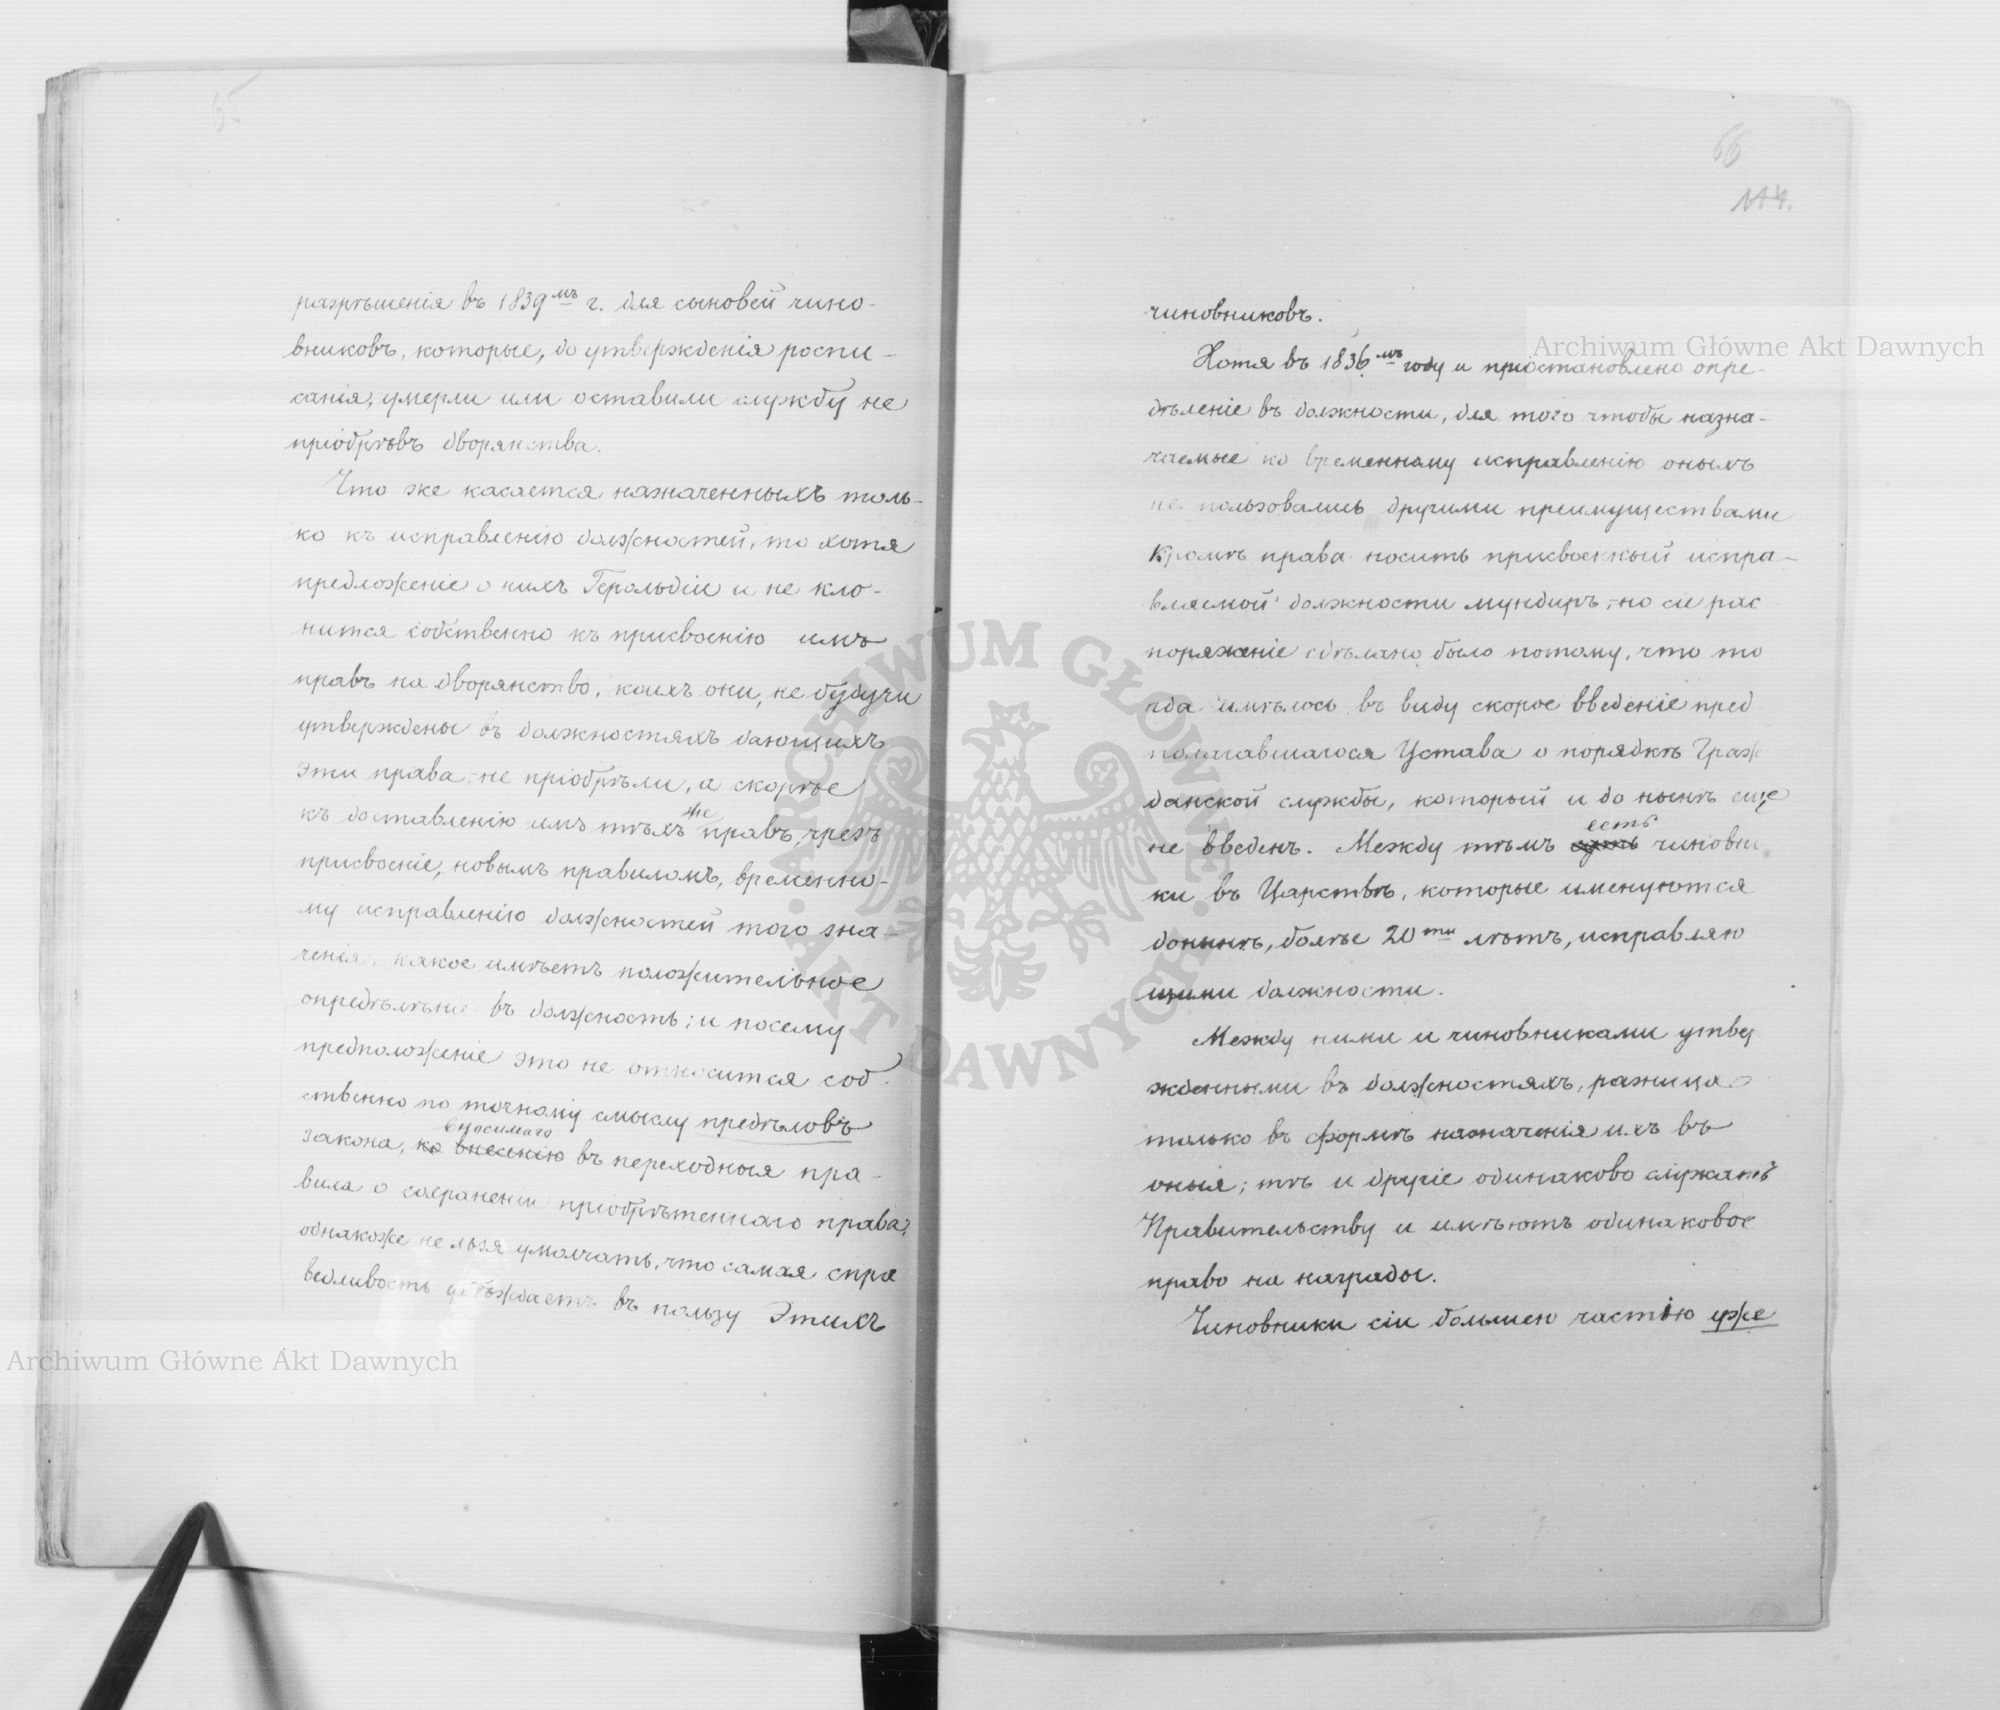 65
разрѣшенія въ 1839мъ г. для сыновей чино-
вниковъ, которые, до утвержденія роспи-
санія, умерли или оставили службу не
пріобрѣвъ дворянства.
Что же касается назначенныхъ толь-
ко къ исправленію должностей, то хотя
предложеніе о нихъ Герольдіи и не кло-
нится собственно къ присвоенію имъ
правъ на дворянство, коихъ они, не будучи
утверждены въ должностяхъ дающихъ
эти права, не пріобрѣли, а скорѣе
къ доставленію имъ тѣхъ же правъ, чрезъ
присвоеніе, новымъ правиломъ, временно-
му исправленію должностей того зна-
ченія, какое имѣетъ положительное
опредѣлѣніе въ должность; и посему
предположеніе это не относится соб-
ственно по точному смыслу предѣловъ
закона, ко внесенію вносимаго въ переходныя пра-
вила о сохраненіи пріобрѣтеннаго права;
однакоже нельзя умолчать, что самая спра
ведливость убѣждаетъ въ пользу Этихъ
66
114.
чиновниковъ.
Хотя въ 1836мъ году и пріостановлено опре-
дѣленіе въ должности, для того чтобы назна-
чаемые ко временному исправленію оныхъ
не пользовались другими преимуществами
кромѣ права носить присвоенный испра-
вляемой должности мундиръ, но сіе рас
поряженіе сдѣлано было потому, что то
гда имѣлось въ виду скорое введеніе пред
полагавшагося Устава о порядкѣ Граж
данской службы, который и до нынѣ еще
не введенъ. Между тѣмъ суть есть чиновни
ки въ Царствѣ, которые именуются
донынѣ, болѣе 20ти лѣтъ, исправляю
щими должности.
Между ними и чиновниками утвер
жденными въ должностяхъ, разница
только въ формѣ назначенія ихъ въ
оныя; тѣ и другіе одинаково служатъ
Правительству и имѣютъ одинаковое
право на награды.
Чиновники сіи большею частію уже
Archiwum Główne Akt Dawnych
Archiwum Główne Akt Dawnych
ARCHIWUM GŁÓWNE AKT DAWNYCH